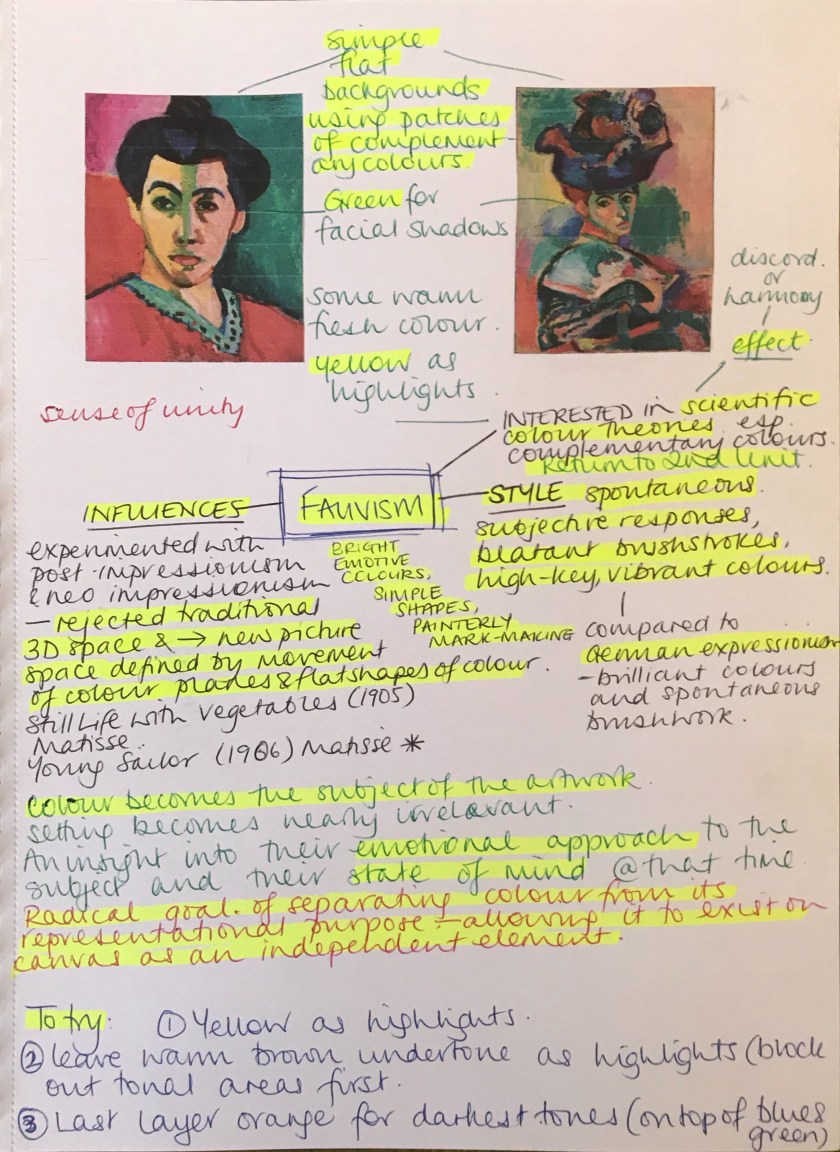 simple
flat
backgrounds
using patches
of complement
ary colours.
Green for
facial shadows
some warm
fresh colour.
yellow as
highlights.
discord.
or
harmony
effect.
sense of unity
INTERESTED in scientific
colour theories esp.
complementary colours.
Return to 2nd Unit.
INFLUENCES
FAUVISM
STYLE spontaneous.
subjective responses,
blatant brushstrokes,
high-key, vibrant colours.
experimented with
post-impressionism
& neo impressionism
— rejected traditional
3D space & → new picture
space defined by movement
of colour planes & flat shapes of colour.
Still Life with Vegetables (1905)
Matisse.
Young Sailor (1906) Matisse *
BRIGHT
EMOTIVE
COLOURS,
SIMPLE
SHAPES,
PAINTERLY
MARK-MAKING
compared to
German expressionism
- brilliant colours
and spontaneous
brushwork.
Colour becomes the subject of the artwork.
setting becomes nearly irrelevant.
An insight into their emotional approach to the
subject and their state of mind @ that time
Radical goal. of separating colour from its
representational purpose - allowing it to exist on
canvas as an independent element.
To try: ① Yellow as highlights.
② leave warm brown undertone as highlights (block
out tonal areas first.
③ Last layer orange for darkest tones (on top of blues
green)